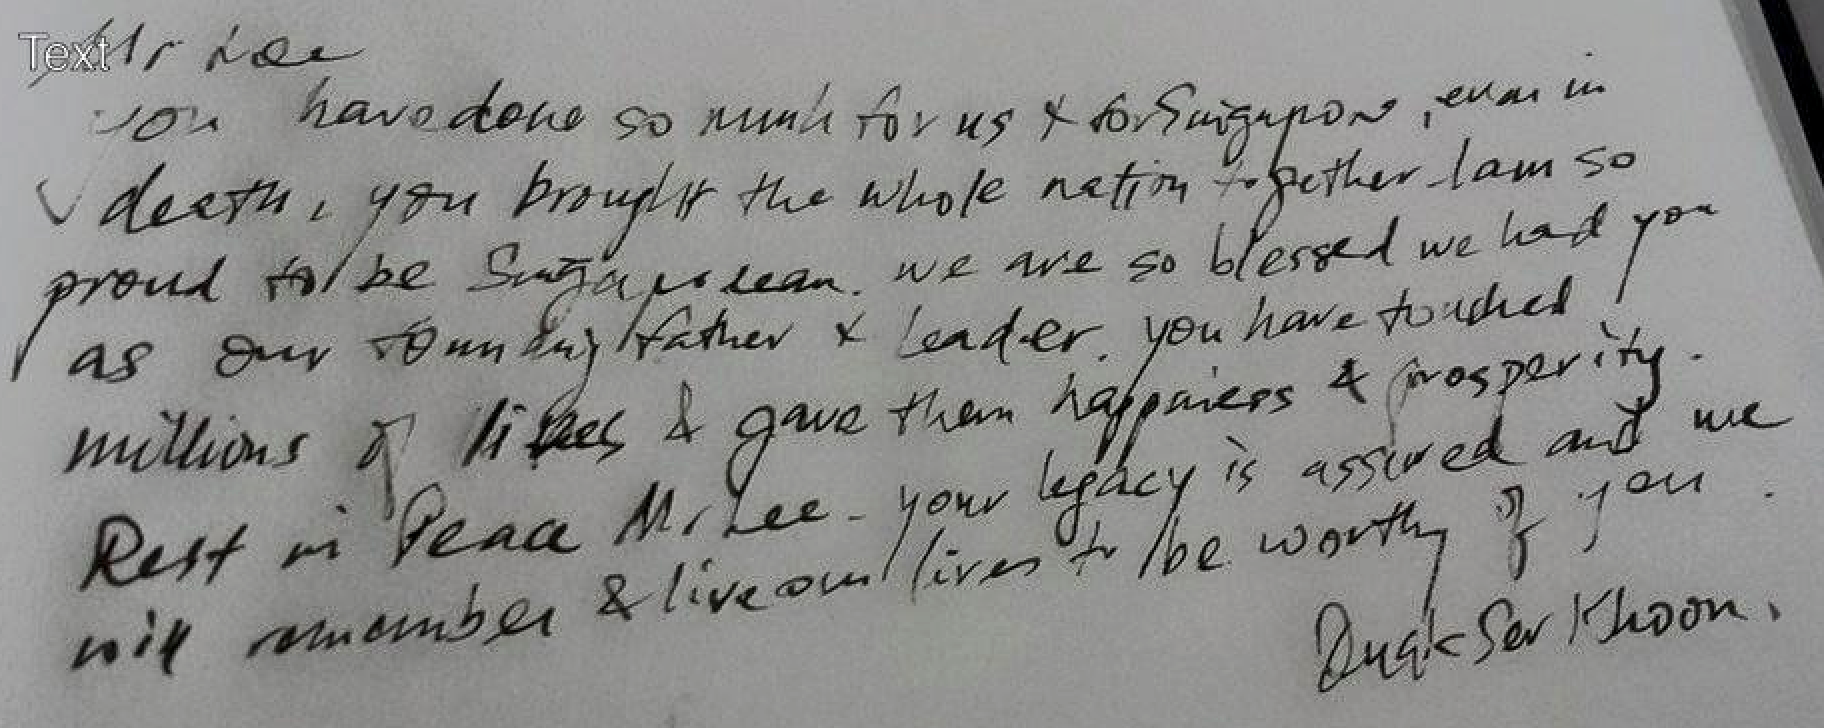 Text
Mr Lee
you have done so much for us & for Singapore, even in
death, you brought the whole nation together. I am so
proud to be Singaporean. we are so blessed we had you
as our founding father & leader. you have touched
millions of lives & gave them happiness & prosperity.
Rest in Peace Mr Lee. your legacy is assured and we
will remember & live our lives to be worthy of you.
Quek Ser Khoon.